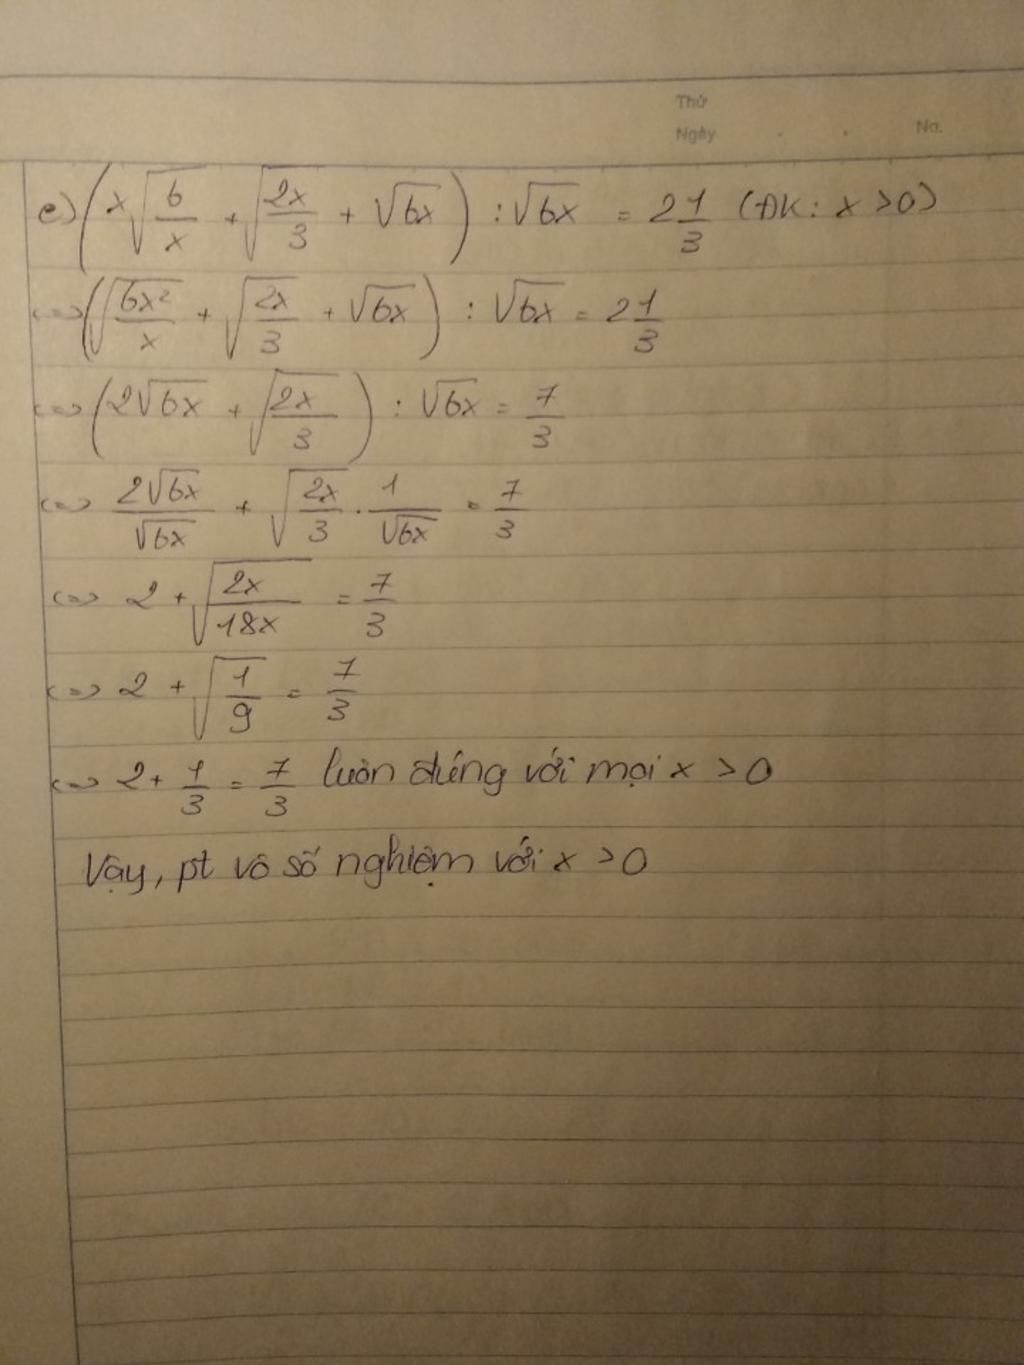 Thứ
Ngày . . No.
e) (x√(6/x) + √(2x/3) + √6x) : √6x = 2 1/3 (ĐK: x > 0)
<=> (√(6x²/x) + √(2x/3) + √6x) : √6x = 2 1/3
<=> (2√6x + √(2x/3)) : √6x = 7/3
<=> 2√6x/√6x + √(2x/3) . 1/√6x = 7/3
<=> 2 + √(2x/18x) = 7/3
<=> 2 + √(1/9) = 7/3
<=> 2 + 1/3 = 7/3 luôn đúng với mọi x > 0
Vậy, pt vô số nghiệm với x > 0